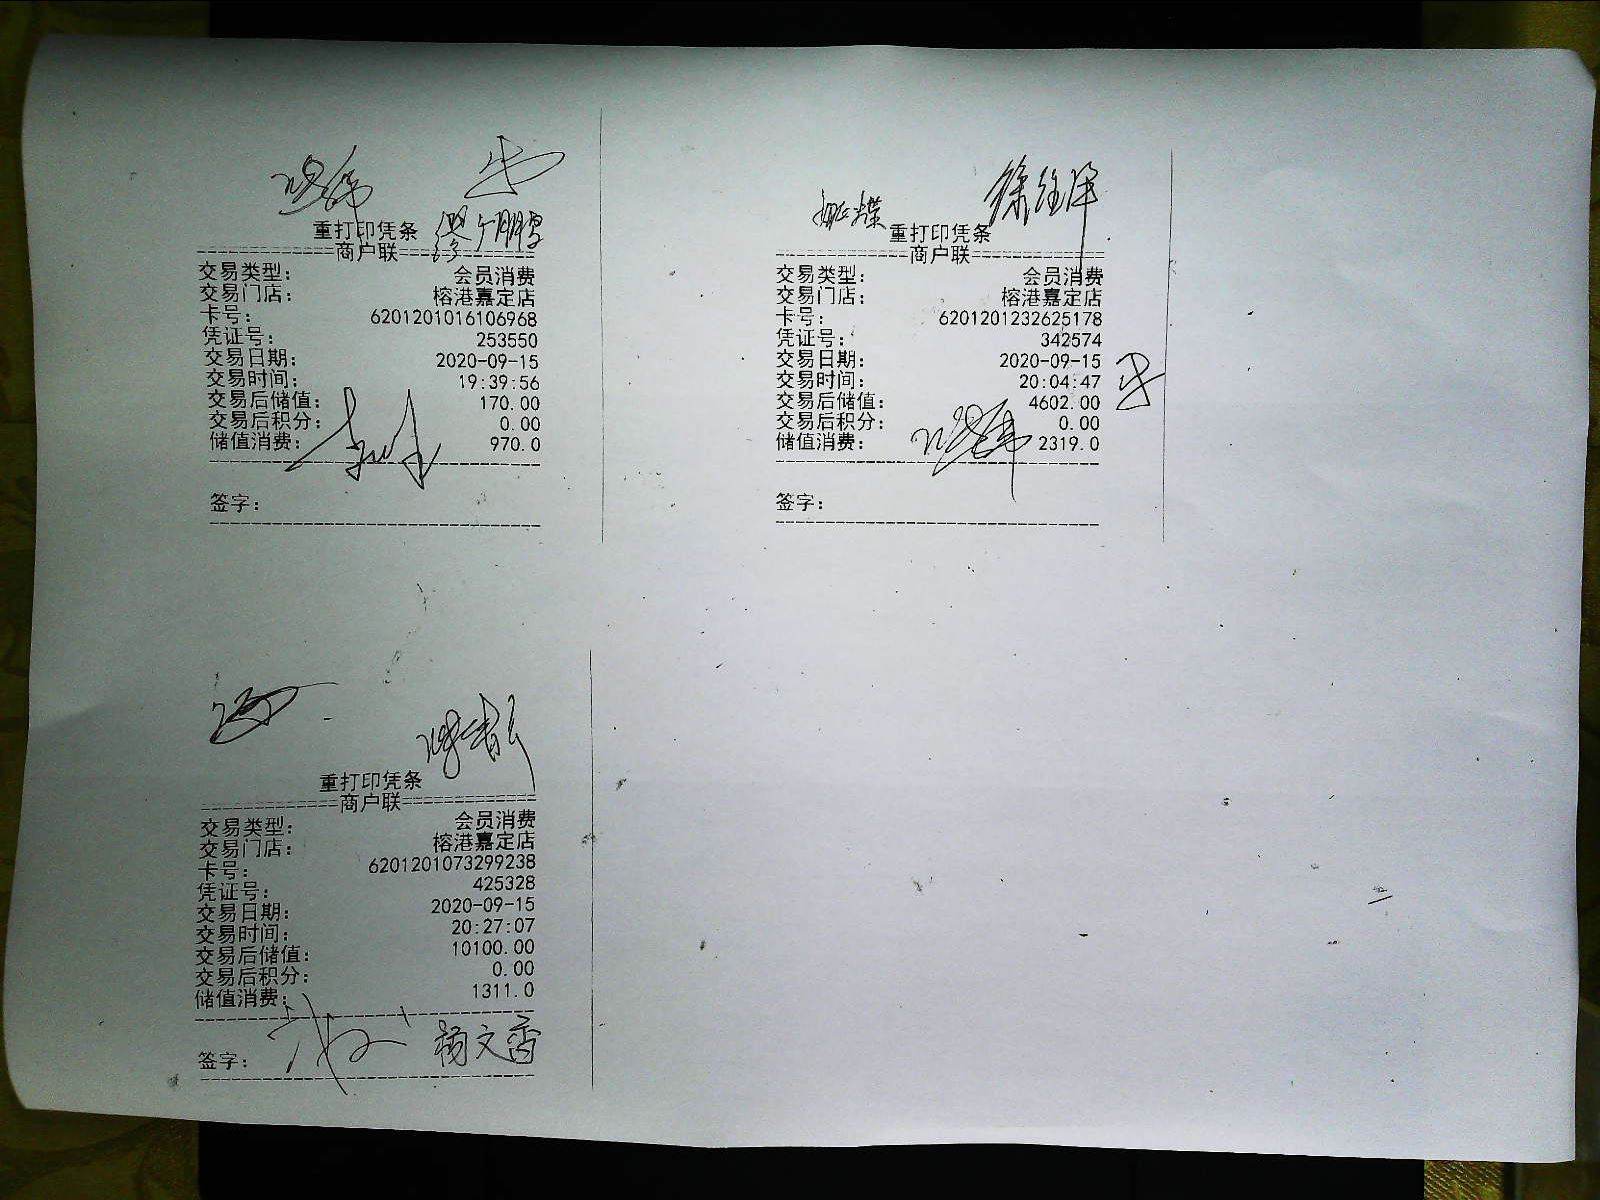 重打印凭条
============商户联============
交易类型: 会员消费
交易门店: 榕港嘉定店
卡号: 6201201016106968
凭证号: 253550
交易日期: 2020-09-15
交易时间: 19:39:56
交易后储值: 170.00
交易后积分: 0.00
储值消费: 970.0
签字:
徐
重打印凭条
============商户联============
交易类型: 会员消费
交易门店: 榕港嘉定店
卡号: 6201201232625178
凭证号: 342574
交易日期: 2020-09-15
交易时间: 20:04:47
交易后储值: 4602.00
交易后积分: 0.00
储值消费: 2319.0
签字:
重打印凭条
============商户联============
交易类型: 会员消费
交易门店: 榕港嘉定店
卡号: 6201201073299238
凭证号: 425328
交易日期: 2020-09-15
交易时间: 20:27:07
交易后储值: 10100.00
交易后积分: 0.00
储值消费: 1311.0
签字: 杨文香